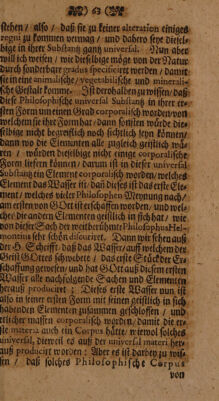 62
stehen / also / daß sie zu keiner alteration einiges
regni zu kommen vermag / und dahero seye dieseL-
bige in ihrer Substantz gantz universal. Nun aber
will ich weisen / wie dieselbige möge von der Natur
durch sonderbare gradus specificirt werden / damit
sie in eine animalische / vegetabilische und minerali-
sche Gestalt komme. Ist derohalben zu wissen / daß
diese Philosophische universal Substantz in ihrer er-
sten Form um einen Grad corporalisch worden von
welchen sie ihre Form hat / dann sonsten würde die-
selbige nicht begreiflich noch sichtlich seyn können /
dann wo die Elementen alle zugleich geistlich wä-
ren / würden dieselbige nicht einige corporalische
Form liefern können / darum ist in dieser universal
Substantz ein Element corporalisch worden / welches
Element das Wasser ist / dañ dieses ist das erste Ele-
ment / welches unter Philosophen Meynung nach /
am ersten von GOtt ist erschaffen worden / und wel-
ches die andern Elementen geistlich in sich hat / wie
von dieser Sach der weitberühmte Philosophus Hel-
montius sehr schön discurirt. Dann wir sehen auß
der H. Schrifft / daß das Wasser / auff welchem der
Geist GOttes schwebete / das erste Stück der Er-
schaffung gewesen / und hat GOtt auß diesem ersten
Wasser alle nachfolgende Sachen und Elementen
herauß produciret ; Dieses erste Wasser nun ist
also in seiner ersten Form mit seinen geistlich in sich
habenden Elementen zusammen geschlossen / und
etlicher massen corporalisch worden / damit die er-
ste materia auch ein Corpus hätte / wiewol solches
universal, dieweil es auß der universal materi her-
auß produciret worden ; Aber es ist darbey zu wis-
sen / daß solches Philosophische Corpus
von